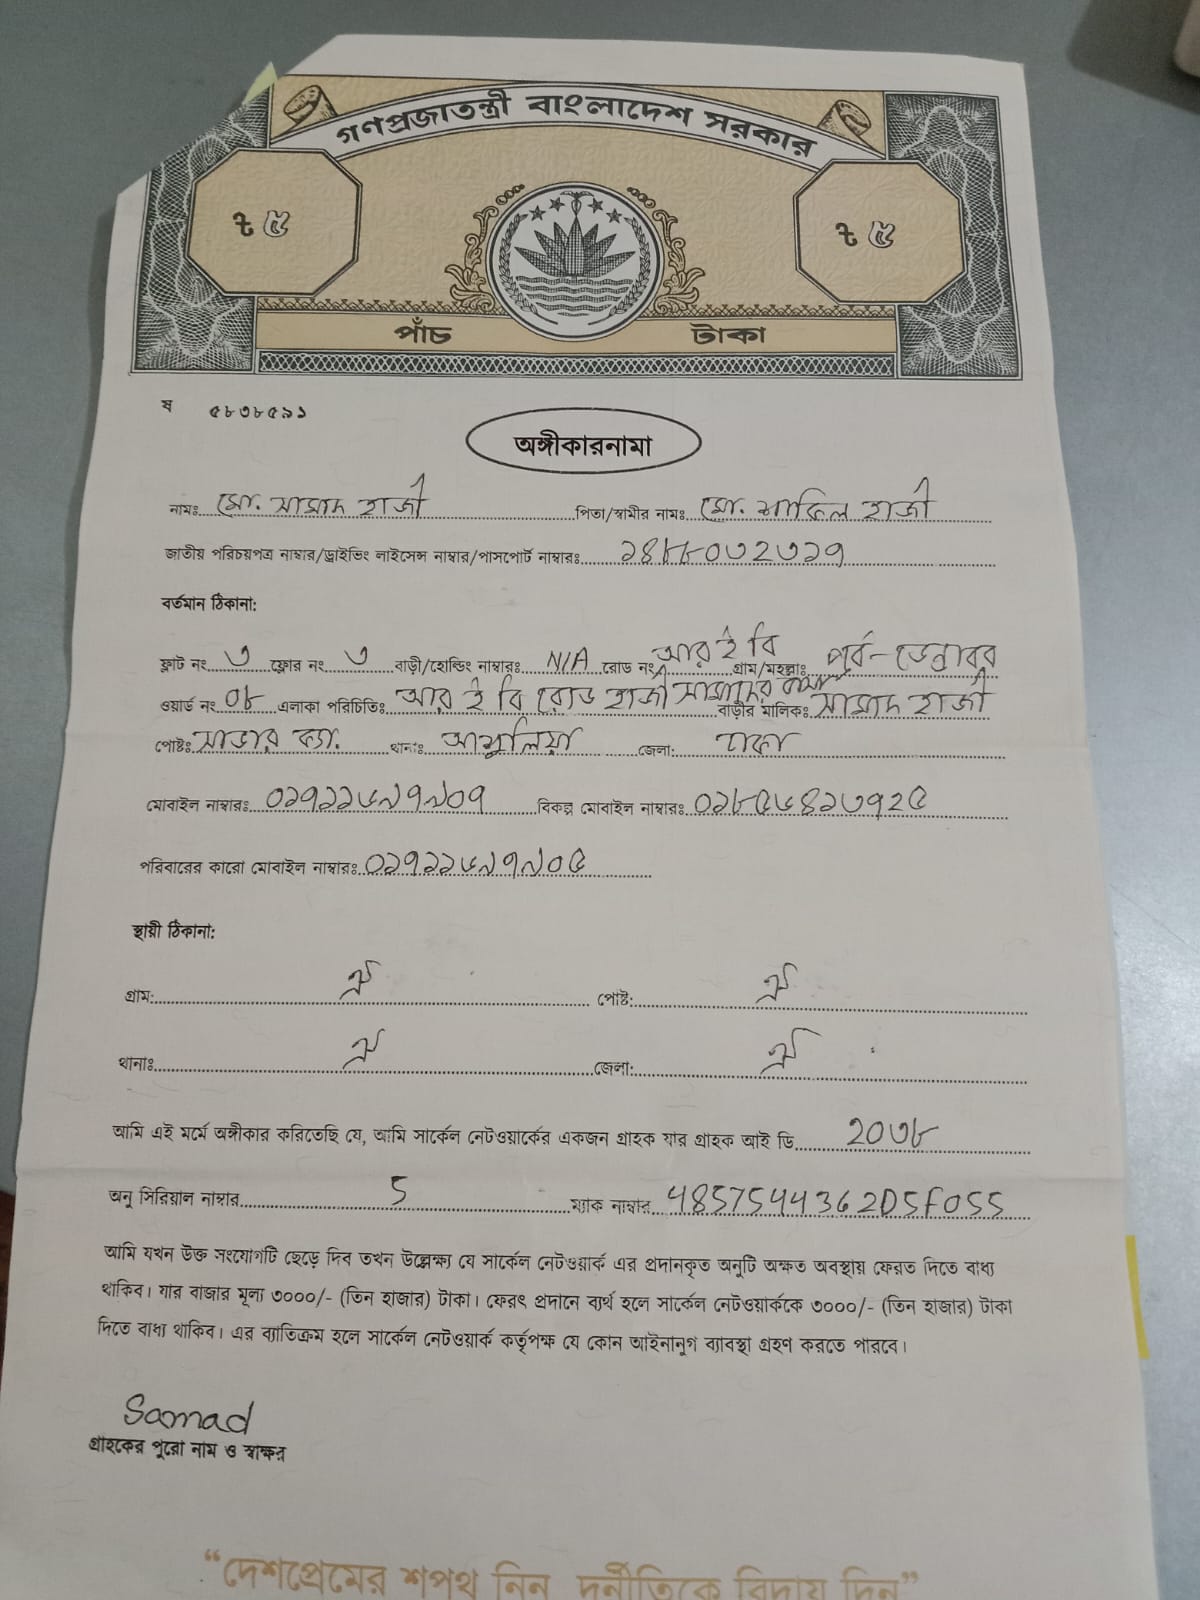 গণপ্রজাতন্ত্রী বাংলাদেশ সরকার
৳ ৫ ৳ ৫
পাঁচ টাকা
ষ ৫৮৩৮৫৯১
অঙ্গীকারনামা
নামঃ মো. সামাদ হাজী পিতা/স্বামীর নামঃ মো. ফাজিল হাজী
জাতীয় পরিচয়পত্র নাম্বার/ড্রাইভিং লাইসেন্স নাম্বার/পাসপোর্ট নাম্বারঃ ১৪৮৮০৩২৩১৭
বর্তমান ঠিকানা:
ফ্লাট নং ৩ ফ্লোর নং ৩ বাড়ী/হোল্ডিং নাম্বারঃ N/A রোড নং আর ই বি গ্রাম/মহল্লাঃ পূর্ব-ডেন্ডাবর
ওয়ার্ড নং ০৮ এলাকা পরিচিতিঃ আর ই বি রোড হাজী সামাদের বাসা বাড়ীর মালিকঃ সামাদ হাজী
পোষ্টঃ সাভার ক্যা. থানাঃ আশুলিয়া জেলা: ঢাকা
মোবাইল নাম্বারঃ ০১৭১১৬৯৭৯০৭ বিকল্প মোবাইল নাম্বারঃ ০১৮৫৬৪১৩৭২৫
পরিবারের কারো মোবাইল নাম্বারঃ ০১৭১১৬৯৭৯০৫
স্থায়ী ঠিকানা:
গ্রাম: ঐ পোষ্ট: ঐ
থানাঃ ঐ জেলা: ঐ
আমি এই মর্মে অঙ্গীকার করিতেছি যে, আমি সার্কেল নেটওয়ার্কের একজন গ্রাহক যার গ্রাহক আই ডি ২০৩৮
অনু সিরিয়াল নাম্বার 5 ম্যাক নাম্বার 4857544362D5F055
আমি যখন উক্ত সংযোগটি ছেড়ে দিব তখন উল্লেক্ষ্য যে সার্কেল নেটওয়ার্ক এর প্রদানকৃত অনুটি অক্ষত অবস্থায় ফেরত দিতে বাধ্য
থাকিব। যার বাজার মূল্য ৩০০০/- (তিন হাজার) টাকা। ফেরৎ প্রদানে ব্যর্থ হলে সার্কেল নেটওয়ার্ককে ৩০০০/- (তিন হাজার) টাকা
দিতে বাধ্য থাকিব। এর ব্যাতিক্রম হলে সার্কেল নেটওয়ার্ক কর্তৃপক্ষ যে কোন আইনানুগ ব্যাবস্থা গ্রহণ করতে পারবে।
Samad
গ্রাহকের পুরো নাম ও স্বাক্ষর
“দেশপ্রেমের শপথ নিন দুর্নীতিকে বিদায় দিন”